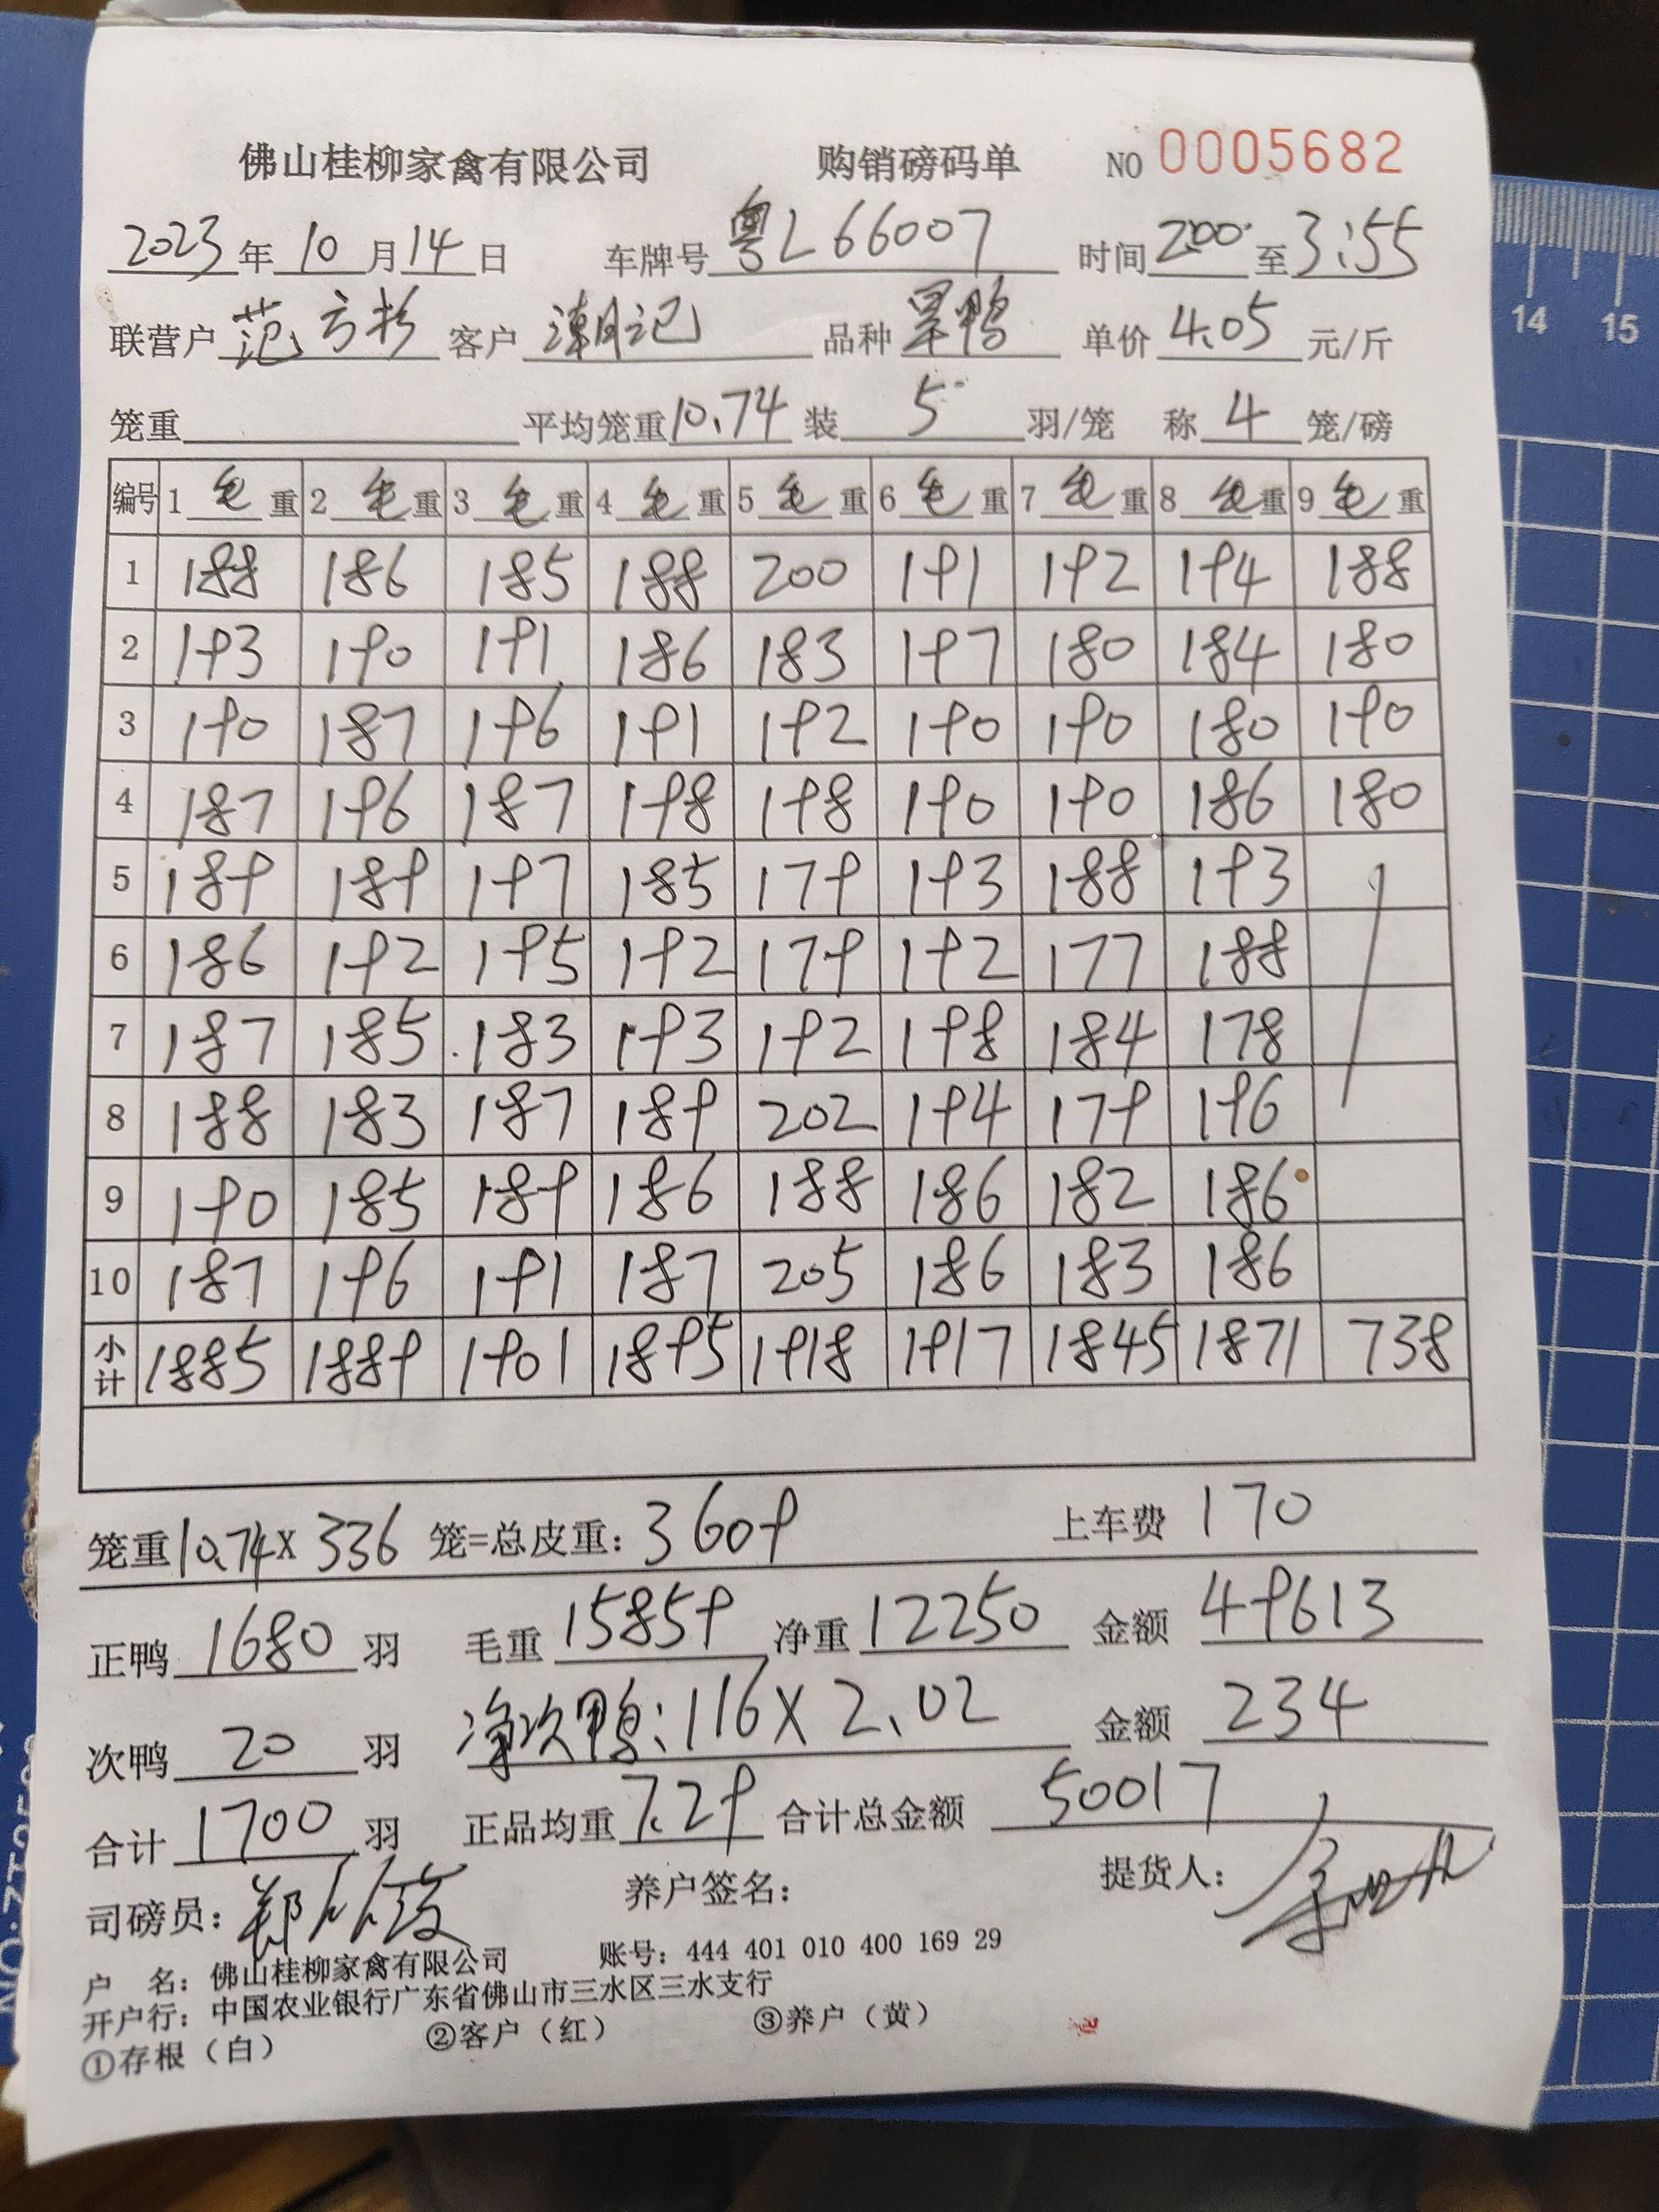 佛山桂柳家禽有限公司 购销磅码单 NO 0005682
2023年10月14日 车牌号 粤L66007 时间 2:00 至 3:55
联营户 范方杉 客户 潮记 品种 旱鸭 单价 4.05 元/斤
笼重 平均笼重 10.74 装 5 羽/笼 称 4 笼/磅
编号 1 毛 重 2 毛 重 3 毛 重 4 毛 重 5 毛 重 6 毛 重 7 毛 重 8 毛 重 9 毛 重
1 188 186 185 188 200 191 192 194 188
2 193 190 191 186 183 197 180 184 180
3 190 187 196 191 192 190 190 180 190
4 187 196 187 198 198 190 190 186 180
5 189 189 197 185 179 193 188 193
6 186 192 195 192 179 192 177 188
7 187 185 183 193 192 198 184 178
8 188 183 187 189 202 194 179 196
9 190 185 189 186 188 186 182 186
10 187 196 191 187 205 186 183 186
小计 1885 1889 1901 1895 1918 1917 1845 1871 738
笼重 10.74 X 336 笼=总皮重: 3609 上车费 170
正鸭 1680 羽 毛重 15859 净重 12250 金额 49613
次鸭 20 羽 净次鸭: 116 X 2.02 金额 234
合计 1700 羽 正品均重 7.29 合计总金额 50017
司磅员: 郑 养户签名: 提货人:
户 名: 佛山桂柳家禽有限公司 账号: 444 401 010 400 169 29
开户行: 中国农业银行广东省佛山市三水区三水支行
①存根（白） ②客户（红） ③养户（黄）
14 15